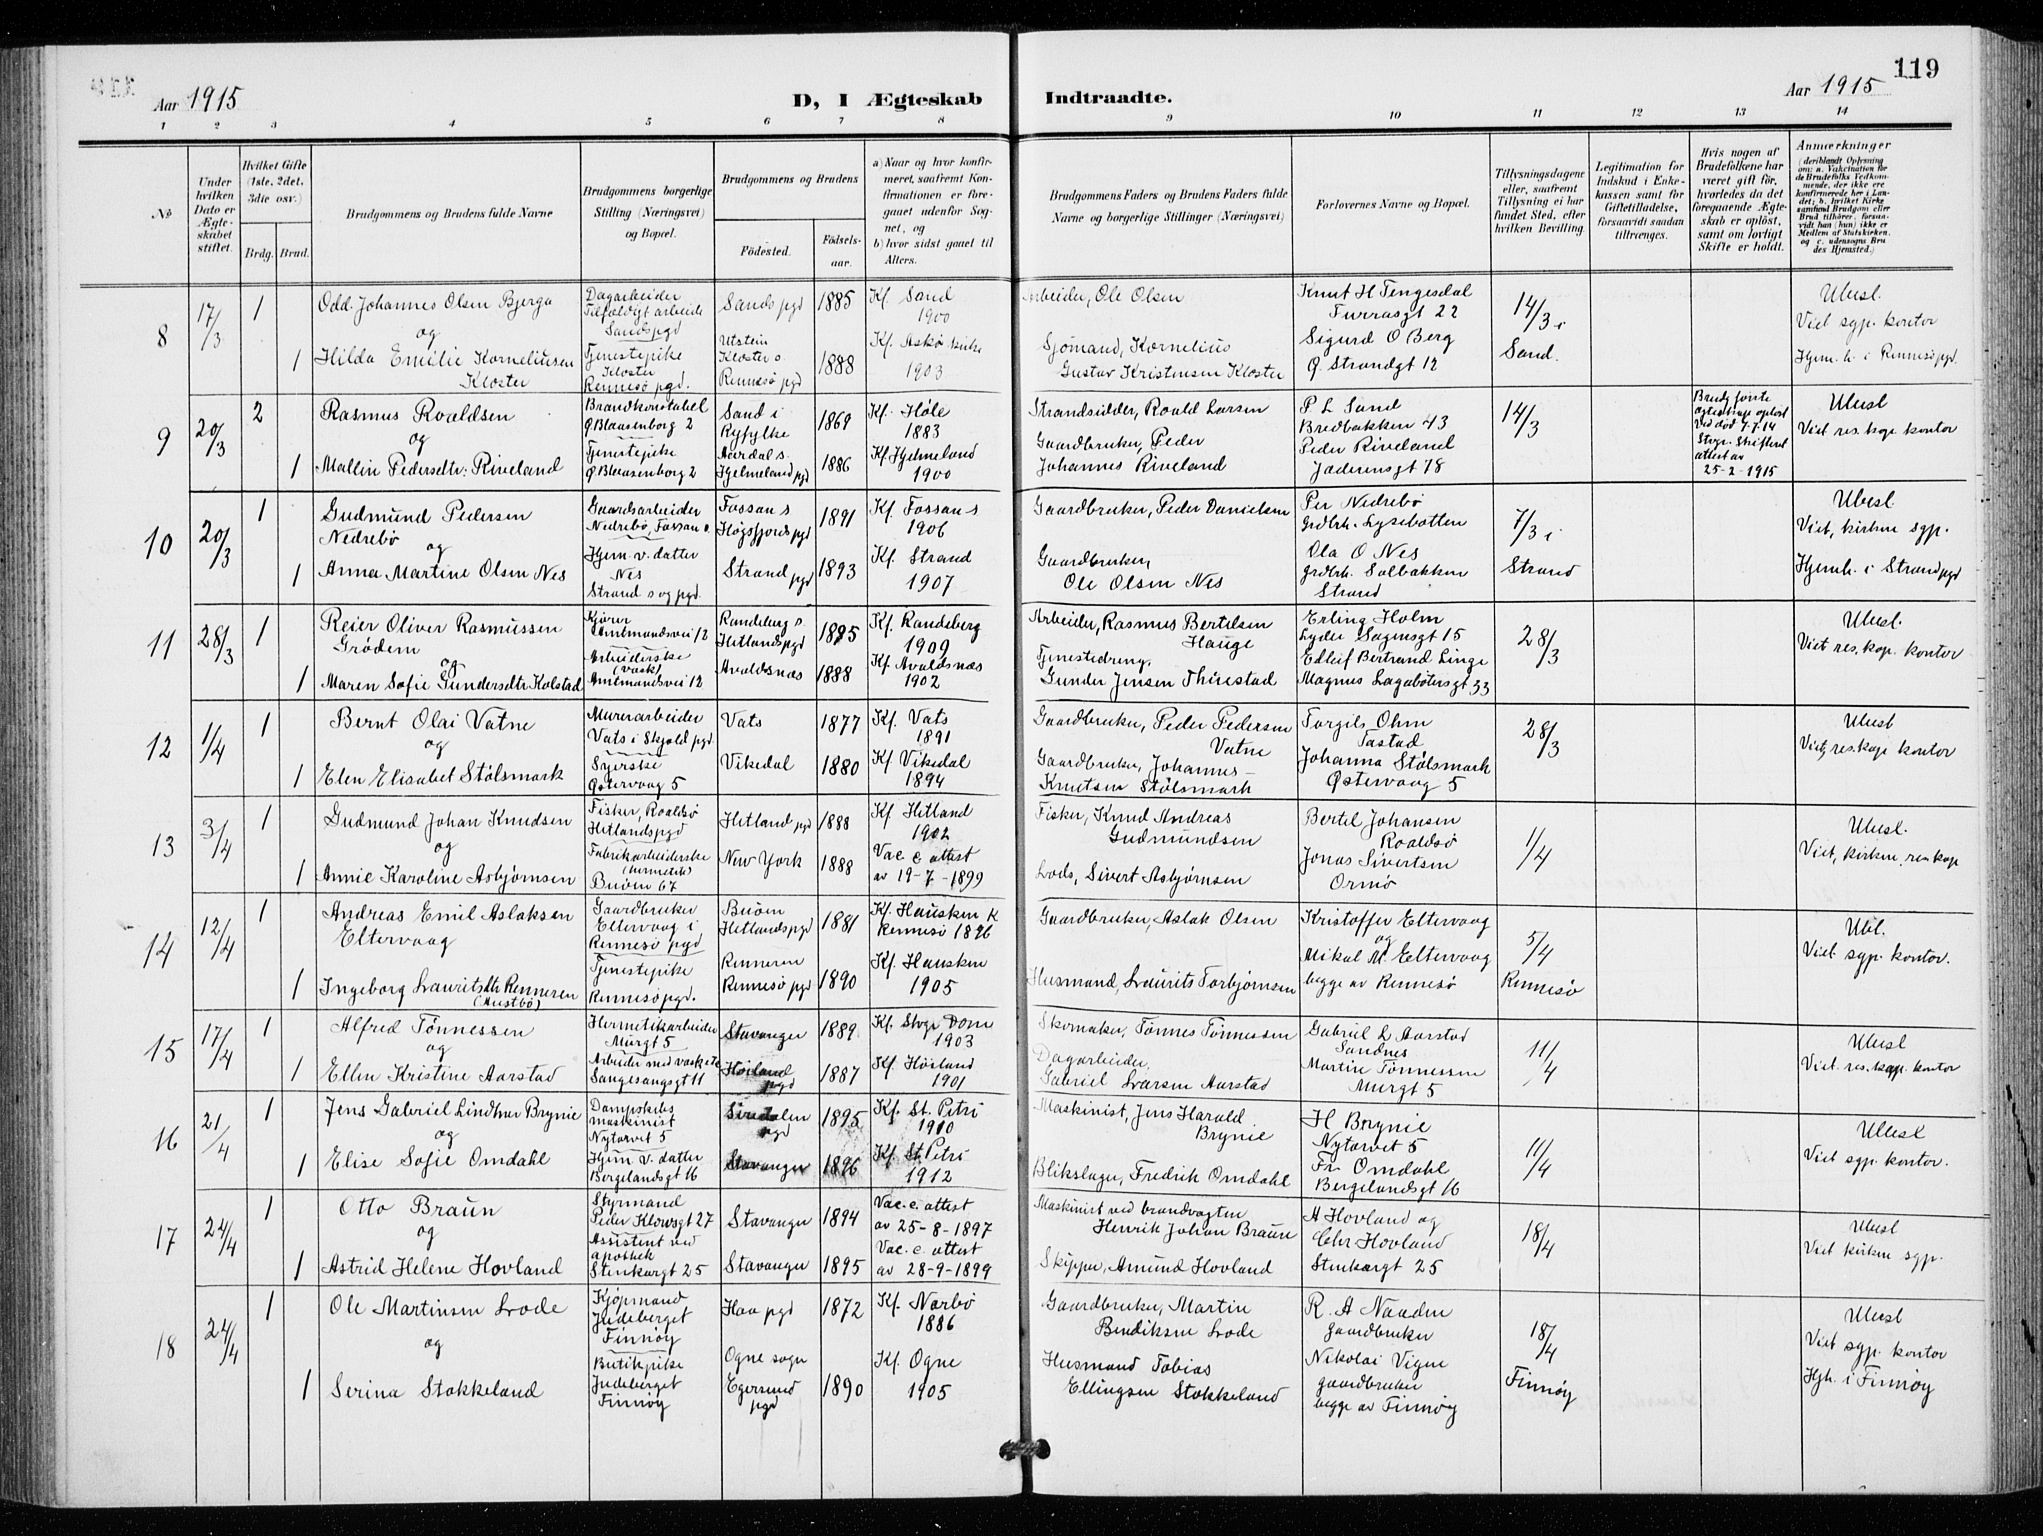 119
Aar 1915
D, I Ægteskab Indtraadte.
Aar 1915
1 2 3 4 5 6 7 8 9 10 11 12 13 14
№
Under hvilken Dato er Ægteskabet stiftet.
Hvilket Gifte (1ste, 2det, 3die osv.)
Brdg. Brud.
Brudgommens og Brudens fulde Navne
Brudgommens borgerlige Stilling (Næringsvei) og Bopæl.
Brudgommens og Brudens
Fødested. Fødselsaar.
a) Naar og hvor konfirmeret, saafremt Konfirmationen er foregaaet udenfor Sognet, og
b) hvor sidst gaaet til Alters.
Brudgommens Faders og Brudens Faders fulde Navne og borgerlige Stillinger (Næringsvei)
Forlovernes Navne og Bopæl.
Tillysningsdagene eller, saafremt Tillysning ei har fundet Sted, efter hvilken Bevilling.
Legitimation for Indskud i Enkekassen samt for Giftetilladelse, forsaavidt saadan tiltrænges.
Hvis nogen af Brudefolkene har været gift før, hvorledes da det foregaaende Ægteskab er opløst, samt om lovligt Skifte er holdt.
Anmærkninger
(deriblandt Oplysning om: a. Vakcination for de Brudefolks Vedkommende, der ikke ere konfirmerede her i Landet; b. hvilket Kirkesamfund Brudgom eller Brud tilhører, forsaavidt han (hun) ikke er Medlem af Statskirken, og c. udensogns Brudes Hjemsted.
8 17/3 1 Odd Johannes Olsen Bjerga
og
1 Hilda Emilie Korneliussen Kloster
Dagarbeider
Tilfældigt arbeide
Sands pgd
Tjenestepike
Kloster
Rennesø pgd.
Sands pgd 1885 Kf. Sand 1900
Utstein
Kloster s.
Rennesø pgd 1888 Kf. Askø kirke 1903
Arbeider, Ole Olsen
Sjømand, Kornelius
Gustav Kristensen Kloster
Knut H Tengesdal
Furrasgt 22
Sigurd O Berg
Ø. Strandgt 12
14/3 i
Sand.
Ubesl.
Viet sgp. kontor
Hjem.h. i Rennesø pgd.
9 20/3 2 Rasmus Roaldsen
og
1 Mallin Pedersdtr. Riveland
Brandkonstabel
Ø Blaasenborg 2
Tjenestepike
Ø Blaasenborg 2
Sand i
Ryfylke 1869 Kf. Høle 1883
Aardal s.
Hjelmeland pgd 1886 Kf Hjelmeland 1900
Strandsidder, Roald Larsen
Gaardbruker, Peder
Johannes Riveland
P L Sand
Bredbakken 43
Peder Riveland
Jaderensgt 78
14/3
Brudg. første
ægteskap opløst
ved død 7-7-14
Stvgr. Skifteret
attest av
25-2-1915
Ubesl
Viet. res. kap. kontor
10 20/3 1 Gudmund Pedersen
Nedrebø
og
1 Anna Martine Olsen Nes
Gaardsarbeider
Nedrebø, Fossan s.
Hjem v. datter
Nes
Strand s og pgd.
Fossan s
Høgsfjords pgd 1891 Kf. Fossan s 1906
Strand pgd 1893 Kf. Strand 1907
Gaardbruker, Peder Danielsen
Gaardbruker,
Ole Olsen Nes
Per Nedrebø
Grdbrk. Lysebotten
Ola O Nes
grdbrk. Solbakken
Strand
7/3 i
Strand
Ubesl.
Viet, kirken sgp.
Hjemh. i Strand pgd
11 28/3 1 Reier Oliver Rasmussen
Grødem
og
1 Maren Sofie Gundersdtr Kolstad
Kjører
Amtmandsvei 12
Arbeiderske
(vask)
Amtmandsvei 12
Randeberg s.
Hetlands pgd 1885 Kf. Randeberg 1909
Avaldsnæs 1888 Kf Avaldsnæs 1902
Arbeider, Rasmus Bertelsen
Hauge
Tjenestedreng,
Gunder Jensen Thirestad
Erling Holm
Lyder Sagensgt 15
Edleif Bertrand Linge
Magnus Lagabøtersgt 33
28/3
Ubesl.
Viet res. kap. kontor
12 1/4 1 Bernt Olai Vatne
og
1 Elen Elisabet Stølsmark
Murerarbeider
Vats i Skjold pgd
Syerske
Østervaag 5
Vats 1877 Kf. Vats 1891
Vikedal 1880 Kf. Vikedal 1894
Gaardbruker, Peder Pedersen
Vatne
Gaardbruker, Johannes
Knutsen Stølsmark
Torgils Ohm
Tastad
Johanna Stølsmark
Østervaag 5
28/3
Ubesl
Viet, res. kap kontor
13 3/4 1 Gudmund Johan Knudsen
og
1 Annie Karoline Asbjørnsen
Fisker, Roaldsø
Hetlands pgd
Fabrikarbeiderske
(hermetik)
Buøen 67
Hetland pgd 1888 Kf Hetland 1902
New York 1888 Vac. c. attest av 19-7-1899
Fisker, Knud Andreas
Gudmundsen
Lods, Sivert Asbjørnsen
Bertel Johansen
Roaldsø
Jonas Sivertsen
Ormø
1/4
Ubesl.
Viet, kirken, res kap
14 12/4 1 Andreas Emil Aslaksen
Eltervaag
1 Ingeborg Lauritsdtr Renneren
(Austbø)
Gaardbruker
Eltervaag i
Rennesø pgd
Tjenestepike
Rennesø pgd.
Buøen
Hetlands pgd 1881 Kf. Hausken k Rennesø 1896
Renneren
Rennesø pgd 1890 Kf. Hausken 1905
Gaardbruker, Aslak Olsen
Husmand, Laurits Torbjørnsen
Kristoffer Eltervaag
og
Mikal M. Eltervaag
begge av Rennesø
5/4
Rennesø
Ubl.
Viet sgp. kontor.
15 17/4 1 Alfred Tønnessen
og
1 Ellen Kristine Aarstad
Hermetikarbeider
Murgt 5
Arbeider med vask etc
Sangesangsgt 11
Stavanger 1889 Kf. Stvgr Dom 1903
Høiland pgd 1887 Kf. Høiland 1901
Skomaker, Tønnes Tønnessen
Dagarbeider,
Gabriel Larsen Aarstad
Gabriel L Aarstad
Sandnes
Martin Tønnessen
Murgt 5
11/4
Ubesl
Viet. res. kap. kontor
16 21/4 1 Jens Gabriel Lindtner Brynie
og
1 Elise Sofie Omdahl
Dampskibs
maskinist
Nytorvet 5
Hjem v. datter
Bergelandsgt 16
Siredalen pgd 1895 Kf. St. Petri 1910
Stavanger 1896 Kf. St. Petri 1912
Maskinist, Jens Harald
Brynie
Blikslager, Fredrik Omdahl
H Brynie
Nytorvet 5
Fr. Omdahl
Bergelandsgt 16
11/4
Ubesl
Viet sgp. kontor.
17 24/4 1 Otto Braun
og
1 Astrid Helene Hovland
Styrmand
Peder Klowsgt 27
Assistent ved
apothek
Stenkargt 25
Stavanger 1894 Vac. c. attest av 25-8-1897
Stavanger 1895 Vac. c. attest av 28-9-1899
Maskinist ved brandvagten
Henrik Johan Braun
Skipper, Amund Hovland
A Hovland og
Chr Hovland
Stenkargt 25
18/4
Ubesl
Viet kirken sgp.
18 24/4 1 Ole Martinsen Lode
og
1 Serina Stokkeland
Kjøpmand
Judeberget
Finnøy
Butikpike
Judeberget
Finnøy
Haa pgd 1872 Kf. Nærbø 1886
Ogne sogn
Egersund pgd 1890 Kf. Ogne 1905
Gaardbruker, Martin
Bendiksen Lode
Husmand Tobias
Ellingsen Stokkeland
R. A Naaden
gaardbruker
Nikolai Vigne
gaardbruker
begge av Finnøy
18/4
Finnøy
Ubesl
Viet sgp. kontor
Hjh. i Finnøy